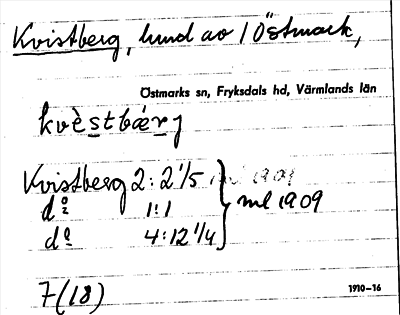 Kvistberg, lund av 1 Östmark,
Östmarks sn, Fryksdals hd, Värmlands län
kvèstbǽrj
Kvistberg 2:2 1/5
dº 1:1 ml 1909
dº 4:12 1/4
7(18)
1910-16